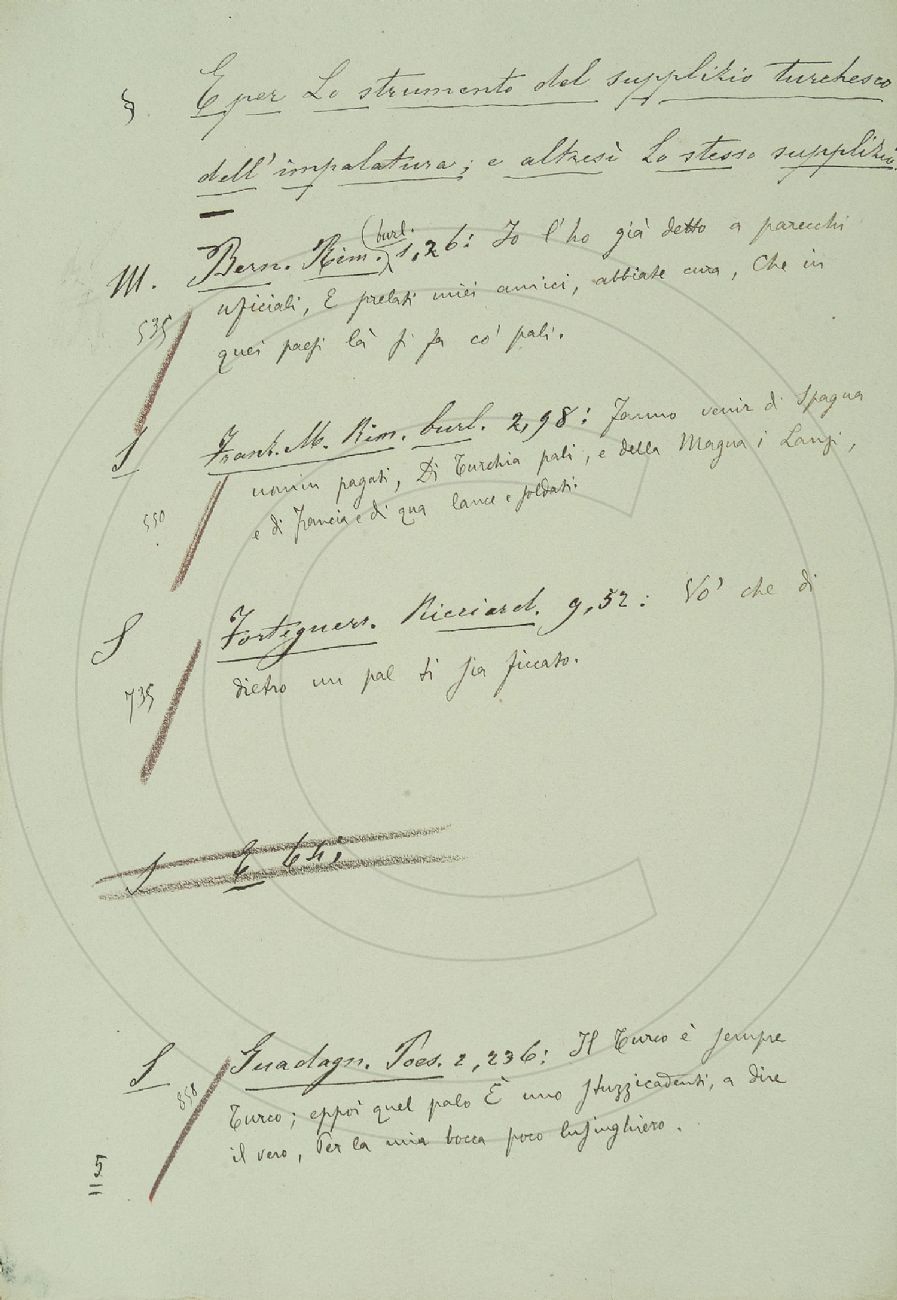 §. E per Lo strumento del supplizio turchesco
dell'impalatura; e altresì Lo stesso supplizio.
M. Bern. Rim. (burl.) 1, 26: Io l'ho già detto a parecchi
535 uficiali, E prelati miei amici, abbiate cura, Che in
quei paesi là si fa co' pali.
S Frank. M. Rim. burl. 2, 98: Fanno venir di Spagna
uomin pagati, Di Turchia pali, e della Magna i Lanzi,
550 e di Francia e di qua lance e soldati.
S Fortiguerr. Ricciard. 9, 52: Vo' che di
735 dietro un pal ti sia ficcato.
S E
S Guadagn. Poes. 2, 236: Il Turco è sempre
858 Turco; eppoi quel palo È uno stuzzicadenti, a dire
il vero, Per la mia bocca poco lusinghiero.
5